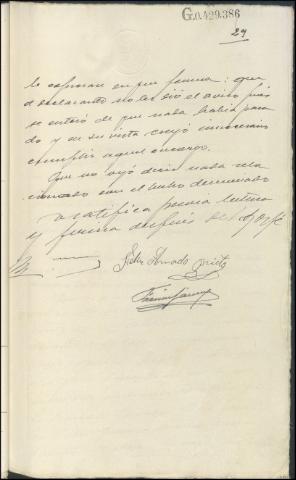 G.0.429.386
29
que
el declarante no les dió el aviso pues
se enteró de que nada había pasa
do y en su vista creyó innecesario
cumplir aquel encargo.
Que no oyó decir nada rela
cionado con el hecho denunciado
se ratifica previa lectura
y firma después de S.Sª doy fé
Felix Amado Prieto